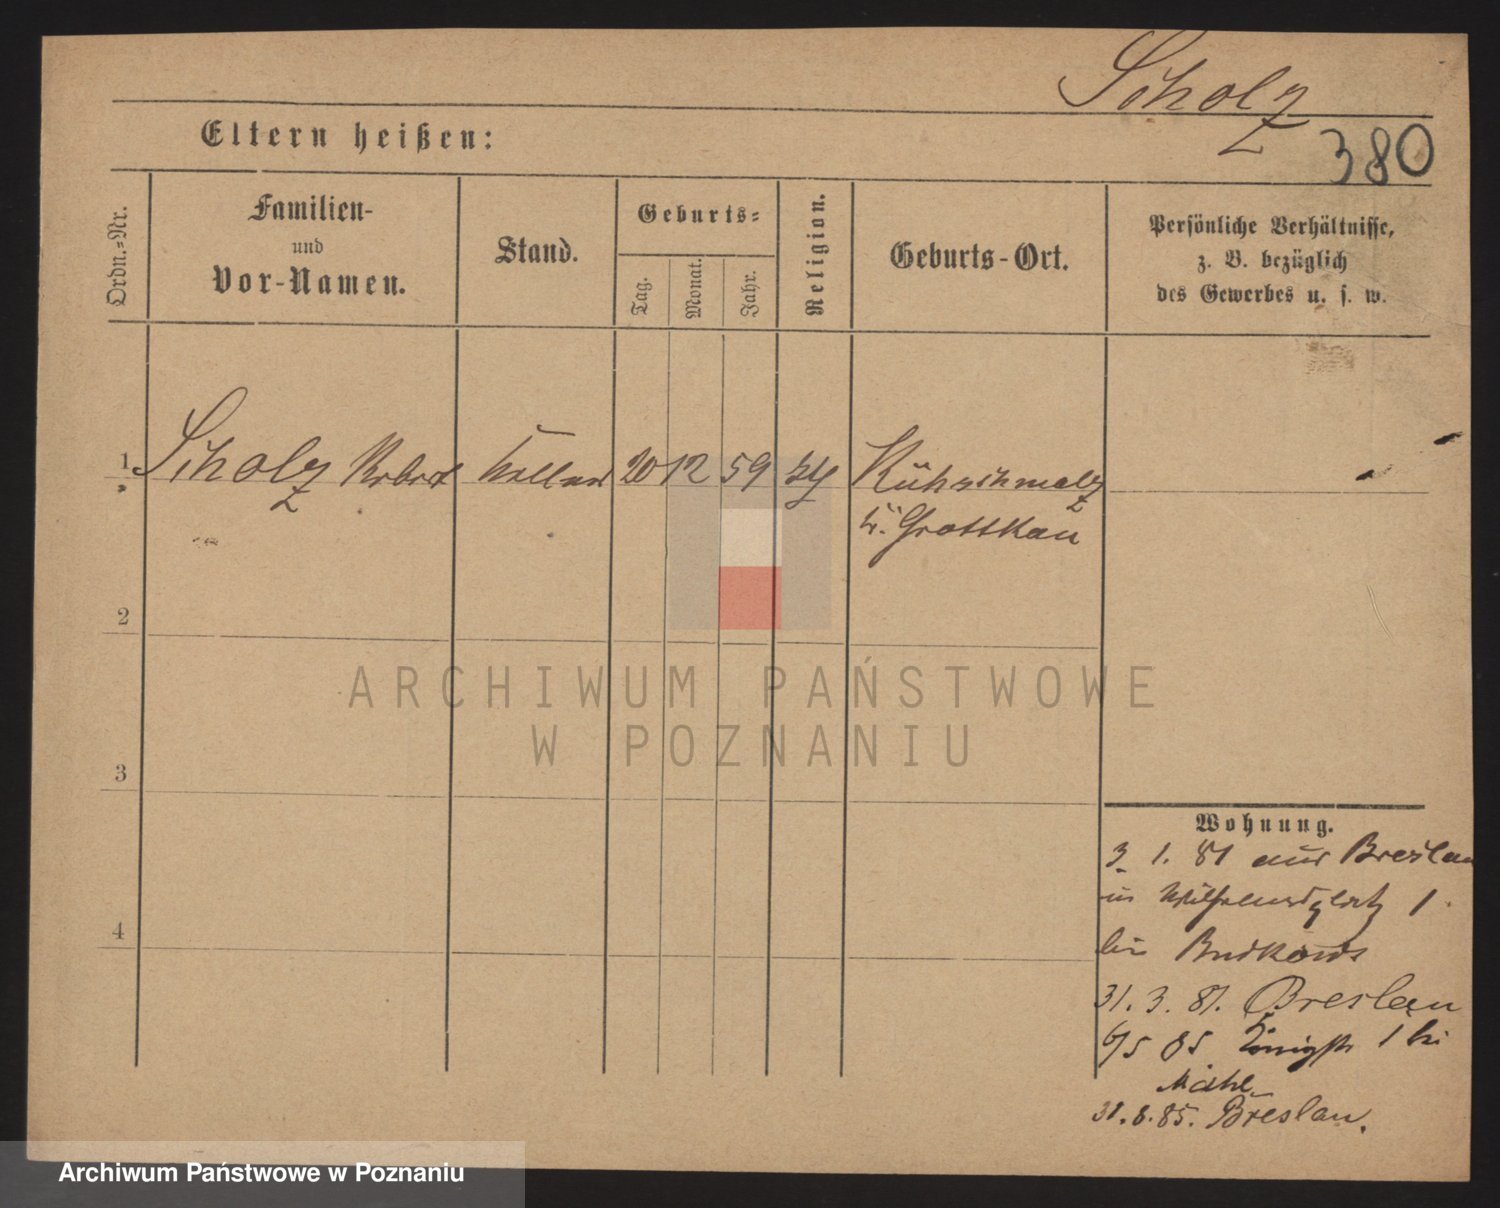 Scholz
380
Eltern heißen:
Ordn.-Nr.
Familien-
und
Vor-Namen.
Stand.
Geburts-
Tag.
Monat.
Jahr.
Religion.
Geburts-Ort.
Persönliche Verhältnisse,
z. B. bezüglich
des Gewerbes u. s. w.
1 Scholz Robert Kellner 20 12 59 Kühschmalz
Kr. Grottkau
2
3
4
Wohnung.
3. 1. 81 aus Breslau
in Wilhelmsplatz 1
bei
31. 3. 81. Breslau
6/5 85 Königstr 1 bei
31. 8. 85. Breslau.
ARCHIWUM PAŃSTWOWE
W POZNANIU
Archiwum Państwowe w Poznaniu